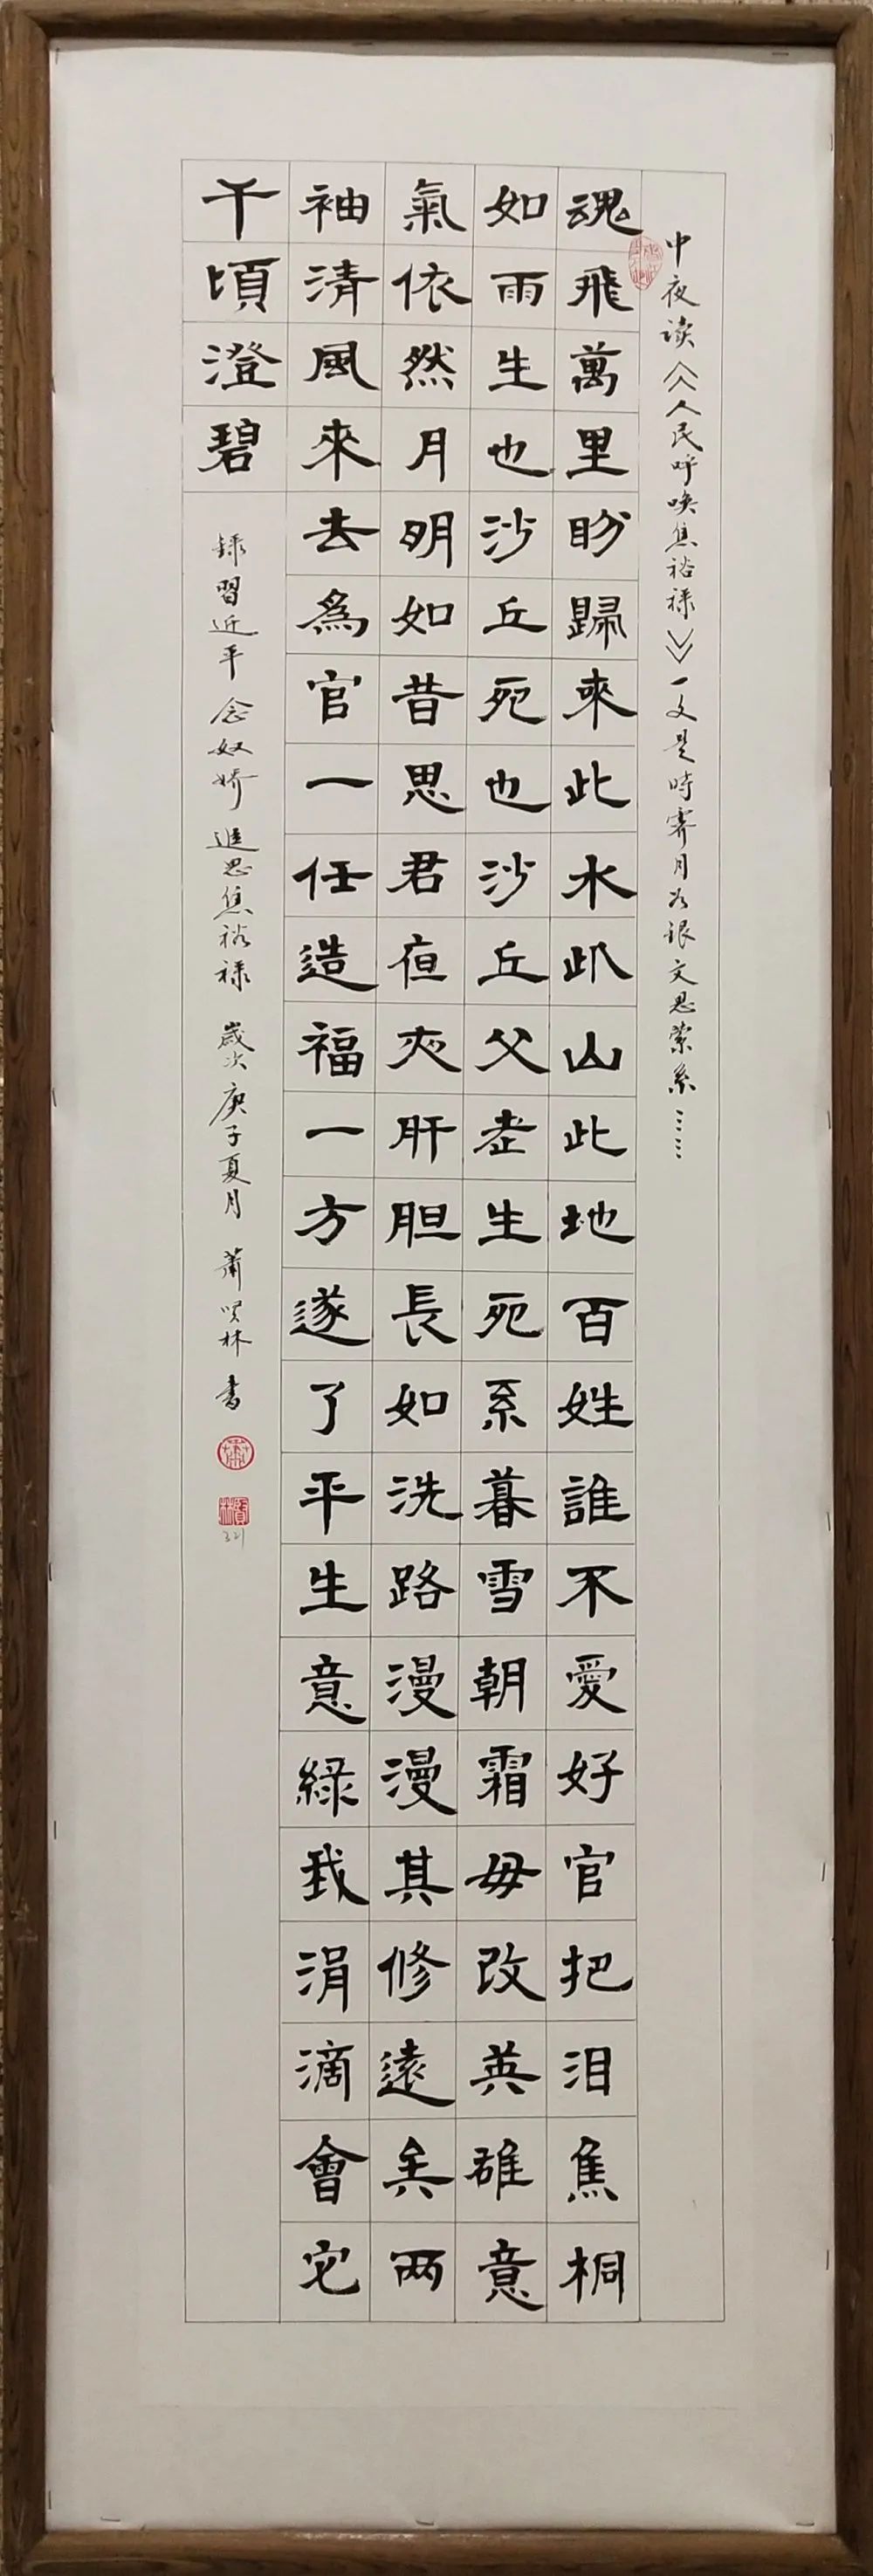 中夜读《人民呼唤焦裕禄》一文是時霽月如银文思萦系……
魂飛萬里盼歸來此水此山此地百姓誰不愛好官把泪焦桐
如雨生也沙丘死也沙丘父老生死系暮雪朝霜毋改英雄意
氣依然月明如昔思君夜夜肝胆長如洗路漫漫其修遠矣两
袖清風來去為官一任造福一方遂了平生意綠我涓滴會它
千頃澄碧
録習近平 念奴嬌 追思焦裕禄 歲次庚子夏月 蕭賢林 書
321